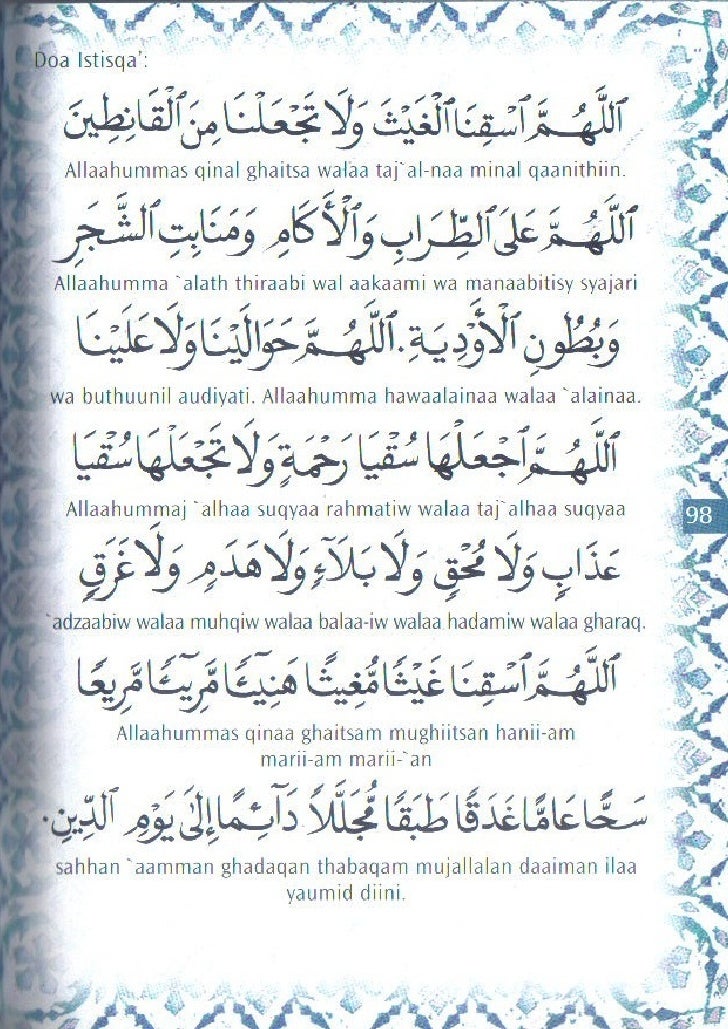 Doa Istisqa':
اَللّٰهُمَّ اَسْقِنَا الْغَيْثَ وَلَا تَجْعَلْنَا مِنَ الْقَانِطِينَ
Allaahummas qinal ghaitsa walaa taj`al-naa minal qaanithiin.
اَللّٰهُمَّ عَلَى الظِّرَابِ وَالْأَكَامِ وَمَنَابِتِ الشَّجَرِ
Allaahumma `alath thiraabi wal aakaami wa manaabitisy syajari
وَبُطُونِ الْأَوْدِيَةِ. اَللّٰهُمَّ حَوَالَيْنَا وَلَا عَلَيْنَا
wa buthuunil audiyati. Allaahumma hawaalainaa walaa `alainaa.
اَللّٰهُمَّ اجْعَلْهَا سُقْيَا رَحْمَةٍ وَلَا تَجْعَلْهَا سُقْيَا
Allaahummaj `alhaa suqyaa rahmatiw walaa taj`alhaa suqyaa
98
عَذَابٍ وَلَا مُحْقٍ وَلَا بَلَآءٍ وَلَا هَدَمٍ وَلَا غَرَقٍ
`adzaabiw walaa muhqiw walaa balaa-iw walaa hadamiw walaa gharaq.
اَللّٰهُمَّ اسْقِنَا غَيْثًا مُّغِيثًا هَنِيْٓئًا مَّرِيْٓئًا مَّرِيعًا
Allaahummas qinaa ghaitsam mughiitsan hanii-am
marii-am marii-`an
سَحًّا عَامًّا غَدَقًا طَبَقًا مُّجَلَّلًا دَآئِمًا إِلَىٰ يَوْمِ الدِّينِ.
sahhan `aamman ghadaqan thabaqam mujallalan daaiman ilaa
yaumid diini.